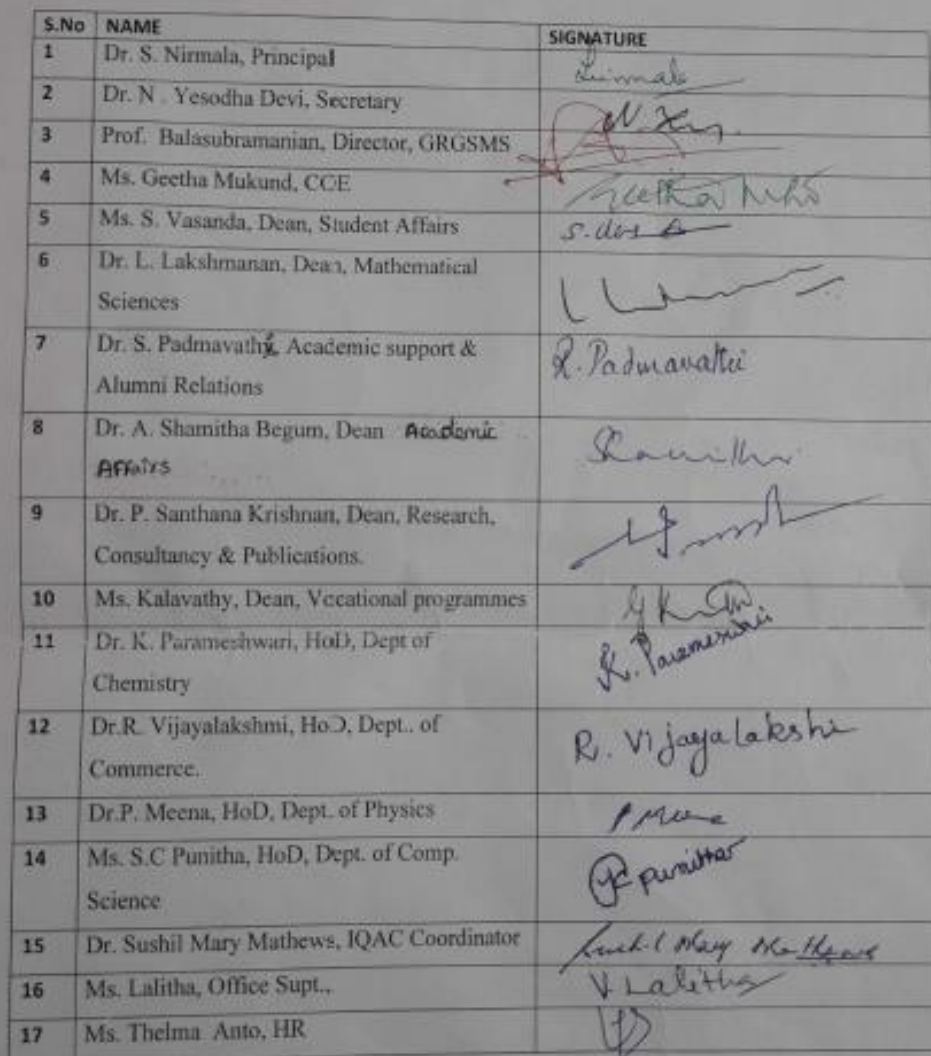 S.No NAME SIGNATURE
1 Dr. S. Nirmala, Principal
2 Dr. N . Yesodha Devi, Secretary
3 Prof. Balasubramanian, Director, GRGSMS
4 Ms. Geetha Mukund, CCE
5 Ms. S. Vasanda, Dean, Student Affairs
6 Dr. L. Lakshmanan, Dean, Mathematical
Sciences
7 Dr. S. Padmavathi, Academic support & R. Padmavathi
Alumni Relations
8 Dr. A. Shamitha Begum, Dean Academic
Affairs
9 Dr. P. Santhana Krishnan, Dean, Research,
Consultancy & Publications.
10 Ms. Kalavathy, Dean, Vocational programmes
11 Dr. K. Parameshwari, HoD, Dept of K. Parameswari
Chemistry
12 Dr.R. Vijayalakshmi, HoD, Dept.. of R. Vijayalakshi
Commerce.
13 Dr.P. Meena, HoD, Dept. of Physics P Meena
14 Ms. S.C Punitha, HoD, Dept. of Comp. punitha
Science
15 Dr. Sushil Mary Mathews, IQAC Coordinator Sushil Mary Mathews
16 Ms. Lalitha, Office Supt., V Lalitha
17 Ms. Thelma Anto, HR